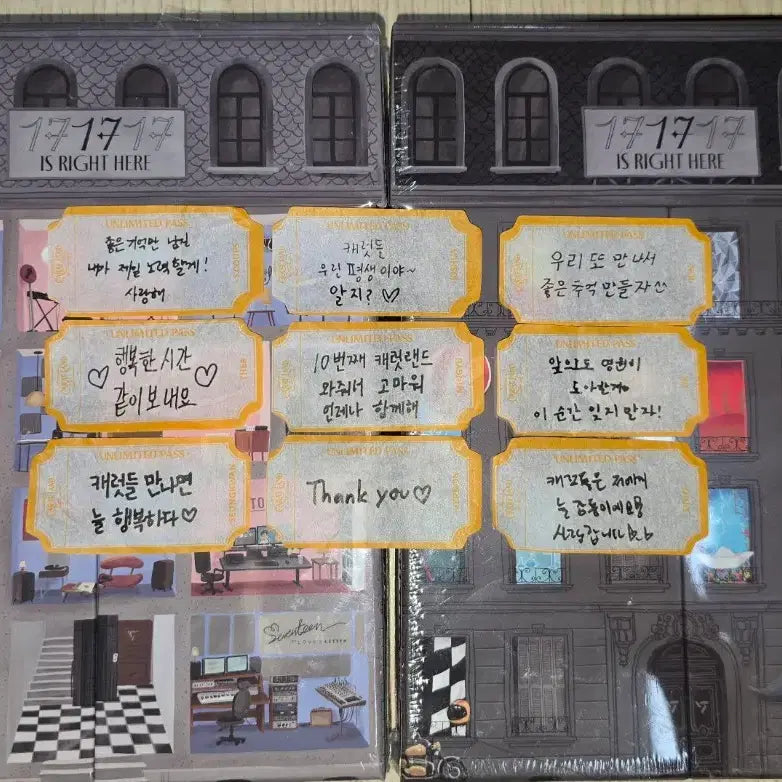 17 17 17
IS RIGHT HERE
17 17 17
IS RIGHT HERE
UNLIMITED PASS
좋은 기억만 남길
내가 제일 노력할게!
사랑해
UNLIMITED PASS
캐럿들
우린 평생이야~
알지? ♡
UNLIMITED PASS
우리 또 만나서
좋은 추억 만들자
UNLIMITED PASS
♡ 행복한 시간 ♡
같이 보내요
UNLIMITED PASS
10번째 캐럿랜드
와줘서 고마워
언제나 함께해
UNLIMITED PASS
앞으로도 영원히
좋아할게
이 순간 잊지 말자!
UNLIMITED PASS
캐럿들 만나면
늘 행복하다♡
SEUNGKWAN
UNLIMITED PASS
Thank you♡
UNLIMITED PASS
저에게
늘 감동이에요
사랑합니다
Seventeen